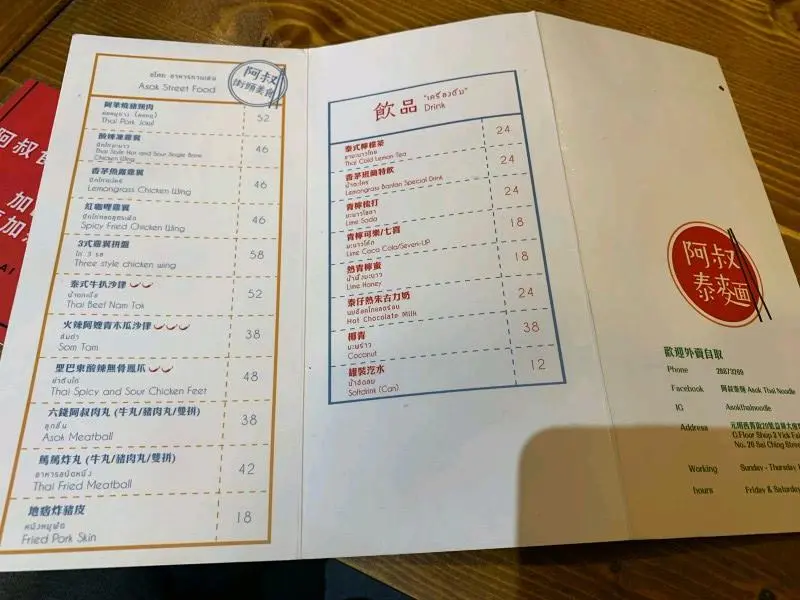 阿叔
加
อโศก อาหารทานเล่น
Asok Street Food
阿叔
街頭美食
阿茶燒豬頸肉
Thai Pork Jowl
52
酸辣凍雞翼
Thai Style Hot and Sour Single Bone
Chicken Wing
46
香茅魚露雞翼
Lemongrass Chicken Wing
46
紅咖哩雞翼
Spicy Fried Chicken Wing
46
3式雞翼拼盤
ไก่ 3 รส
Three style chicken wing
58
泰式牛扒沙律
น้ำตกเนื้อ
Thai Beef Nam Tok
52
火辣阿嬤青木瓜沙律
ส้มตำ
Som Tam
38
聖巴東酸辣無骨鳳爪
ยำตีนไก่
Thai Spicy and Sour Chicken Feet
48
六錢阿叔肉丸 (牛丸/豬肉丸/雙拼)
ลูกชิ้น
Asok Meatball
38
篤篤炸丸 (牛丸/豬肉丸/雙拼)
Thai Fried Meatball
42
地痞炸豬皮
Fried Pork Skin
18
飲品 "เครื่องดื่ม"
Drink
泰式檸檬茶
ชามะนาวไทย
Thai Cold Lemon Tea
24
香茅班蘭特飲
น้ำตะไคร้
Lemongrass Banlan Special Drink
24
青檸梳打
มะนาวโซดา
Lime Soda
24
青檸可樂/七喜
มะนาวโค้ก
Lime Coca Cola/Seven-UP
18
熱青檸蜜
น้ำผึ้งมะนาว
Lime Honey
18
泰仔熱朱古力奶
Hot Chocolate Milk
24
椰青
มะพร้าว
Coconut
38
罐裝汽水
น้ำอัดลม
Softdrink (Can)
12
阿叔
泰麵
歡迎外賣自取
Phone 28873269
Facebook 阿叔泰麵 Asok Thai Noodle
IG Asokthainoodle
Address
G.Floor Shop 3 Yick Fai
No. 20 Sai Ching Street
Working Sunday - Thursday
hours Friday & Saturday